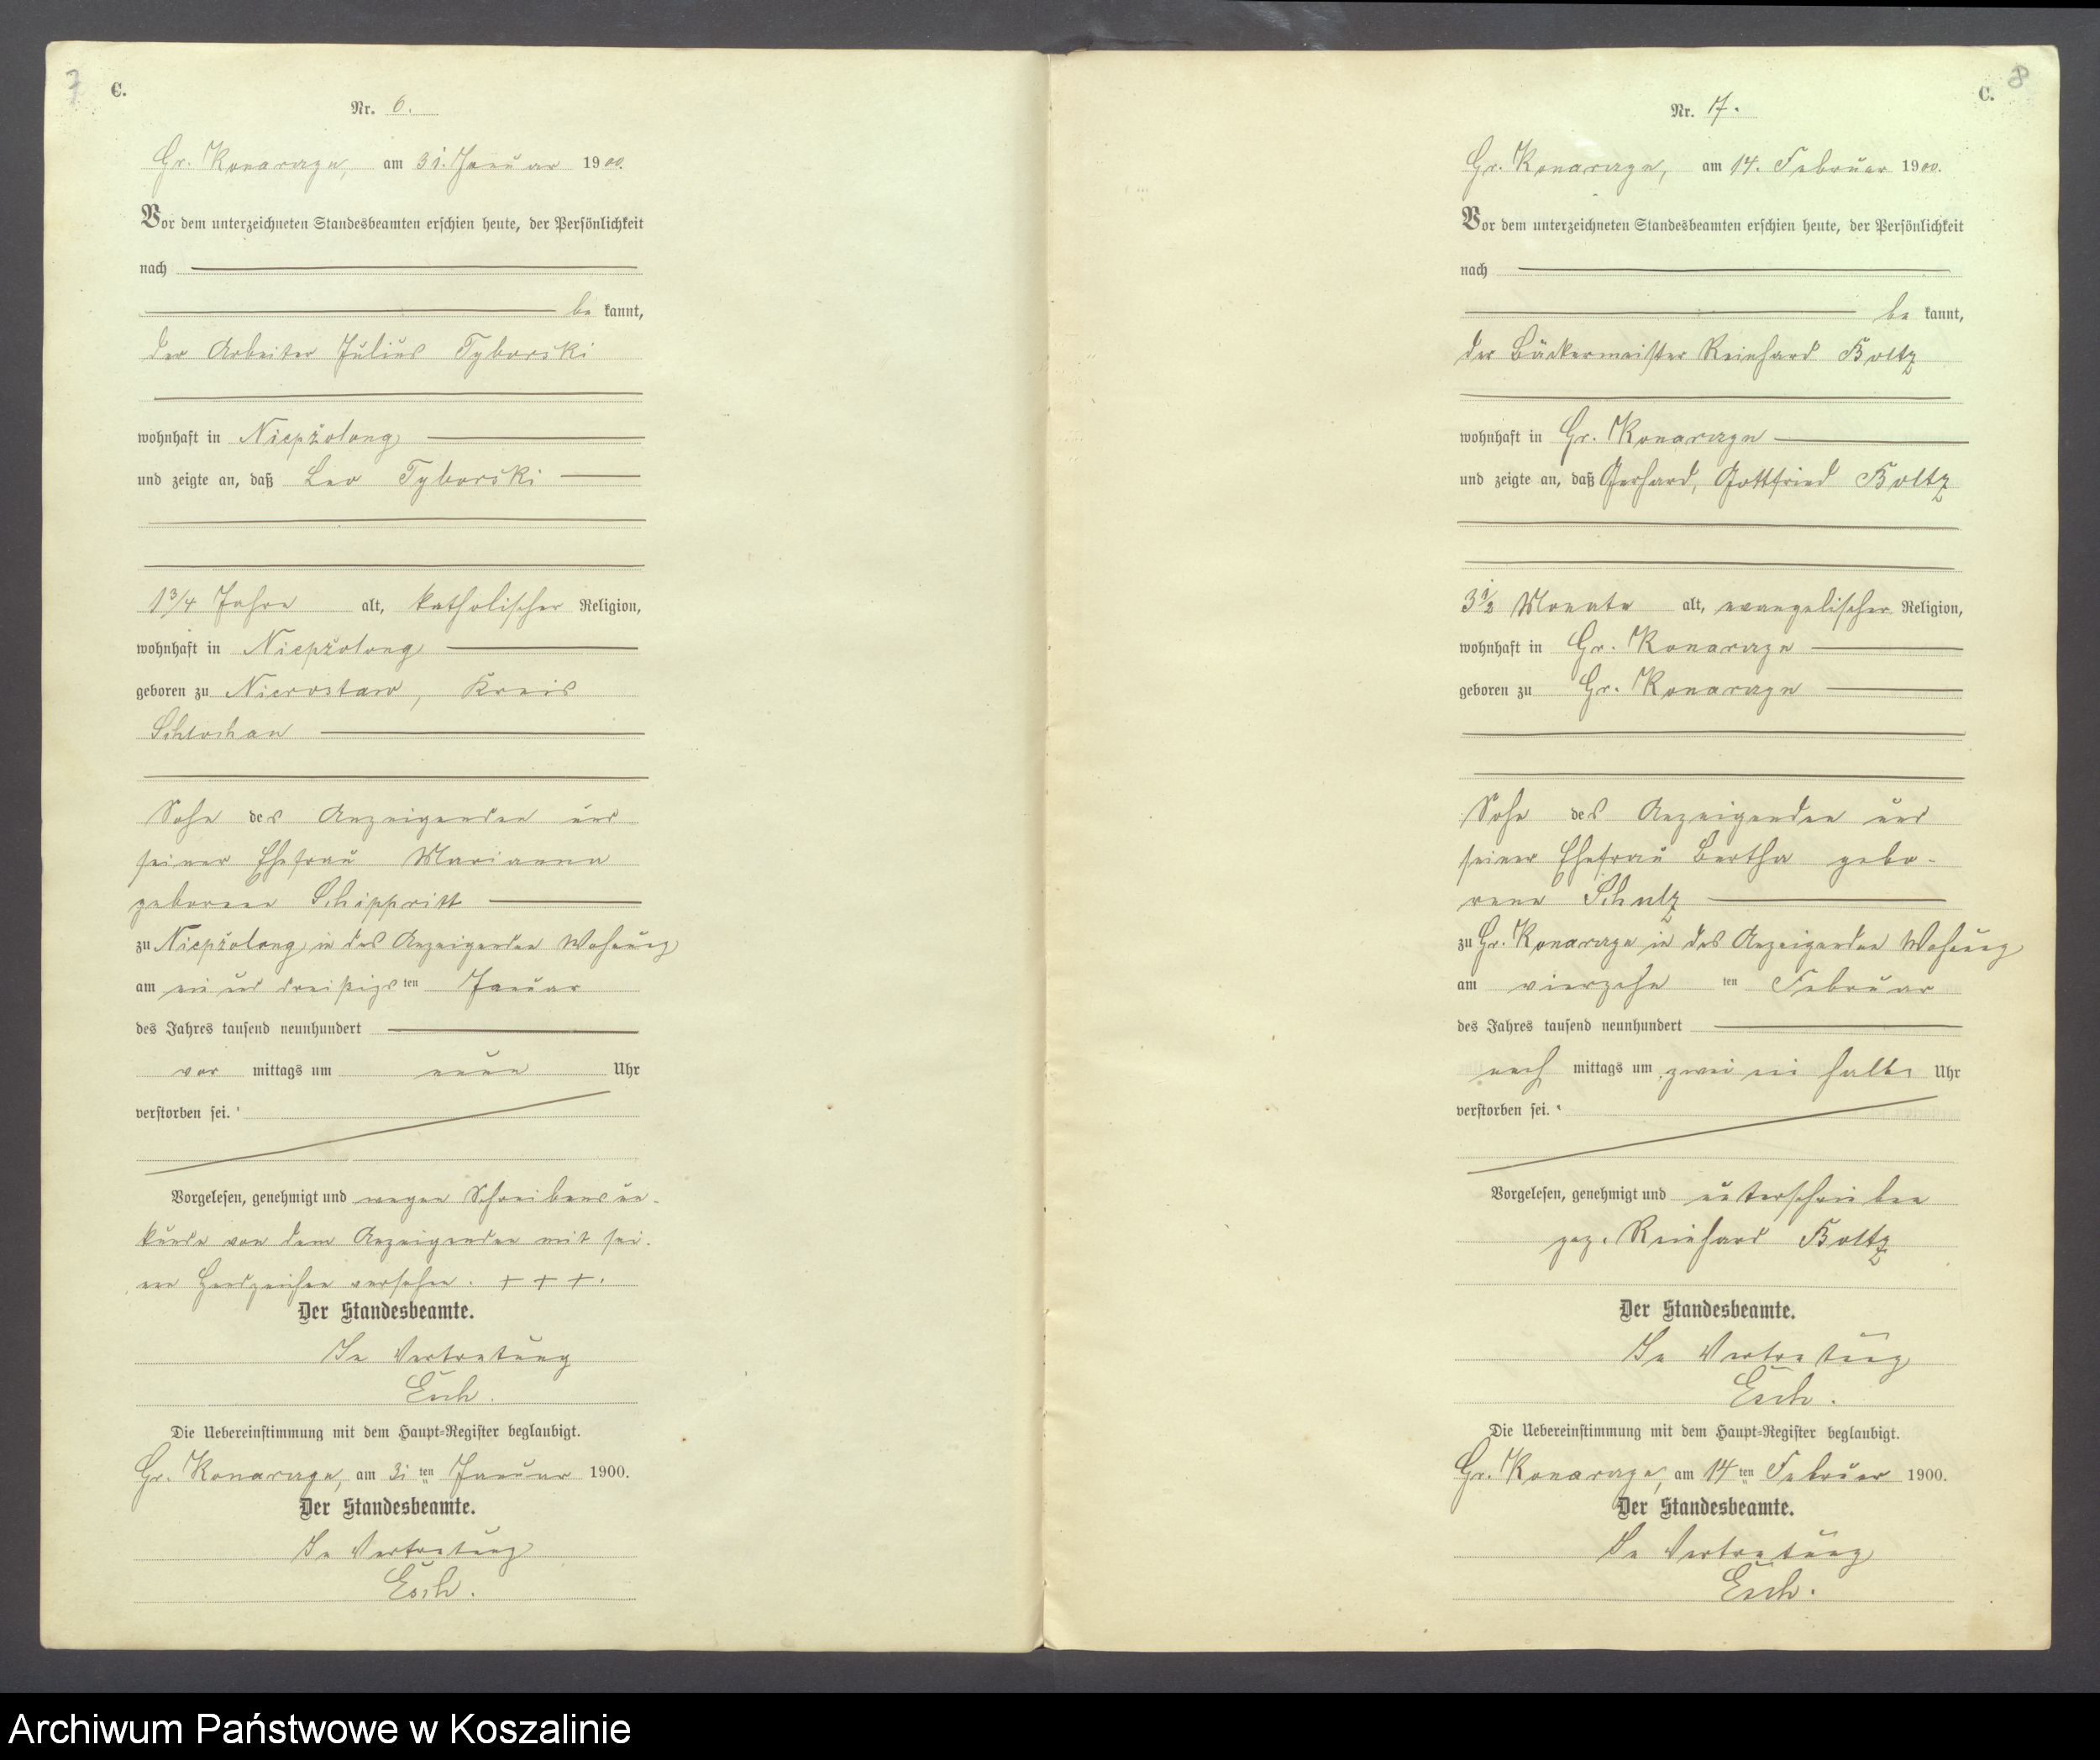 7
C.
Nr. 6.
Gr. Konarczyn, am 31. Januar 1900.
Vor dem unterzeichneten Standesbeamten erschien heute, der Persönlichkeit
nach
be kannt,
der Arbeiter Julius Tyborski
wohnhaft in Niepżolong
und zeigte an, daß Leo Tyborski
1 3/4 Jahre alt, katholischer Religion,
wohnhaft in Niepżolong
geboren zu Kreis
Schlochau
Sohn des Anzeigenden und
seiner Ehefrau Marianna
geborene
zu Niepżolong in des Anzeigenden Wohnung
am ein und dreißigsten Januar
des Jahres tausend neunhundert
vor mittags um neun Uhr
verstorben sei.
Vorgelesen, genehmigt und wegen Schreibensun-
kunde von dem Anzeigenden mit sei-
nem Handzeichen versehen. + + +.
Der Standesbeamte.
In Vertretung
Esch.
Die Uebereinstimmung mit dem Haupt-Register beglaubigt.
Gr. Konarczyn, am 31 ten Januar 1900.
Der Standesbeamte.
In Vertretung
Esch.
8
C.
Nr. 7.
Gr. Konarczyn, am 14. Februar 1900.
Vor dem unterzeichneten Standesbeamten erschien heute, der Persönlichkeit
nach
be kannt,
der Bäckermeister Reinhard Boltz
wohnhaft in Gr. Konarczyn
und zeigte an, daß Gerhard, Gottfried Boltz
3 1/2 Monate alt, evangelischer Religion,
wohnhaft in Gr. Konarczyn
geboren zu Gr. Konarczyn
Sohn des Anzeigenden und
seiner Ehefrau Bertha gebo-
rene Schulz
zu Gr. Konarczyn in des Anzeigenden Wohnung
am vierzehn ten Februar
des Jahres tausend neunhundert
nach mittags um zwei ein halb Uhr
verstorben sei.
Vorgelesen, genehmigt und unterschrieben
gez. Reinhard Boltz
Der Standesbeamte.
In Vertretung
Esch.
Die Uebereinstimmung mit dem Haupt-Register beglaubigt.
Gr. Konarczyn, am 14 ten Februar 1900.
Der Standesbeamte.
In Vertretung
Esch.
Archiwum Państwowe w Koszalinie